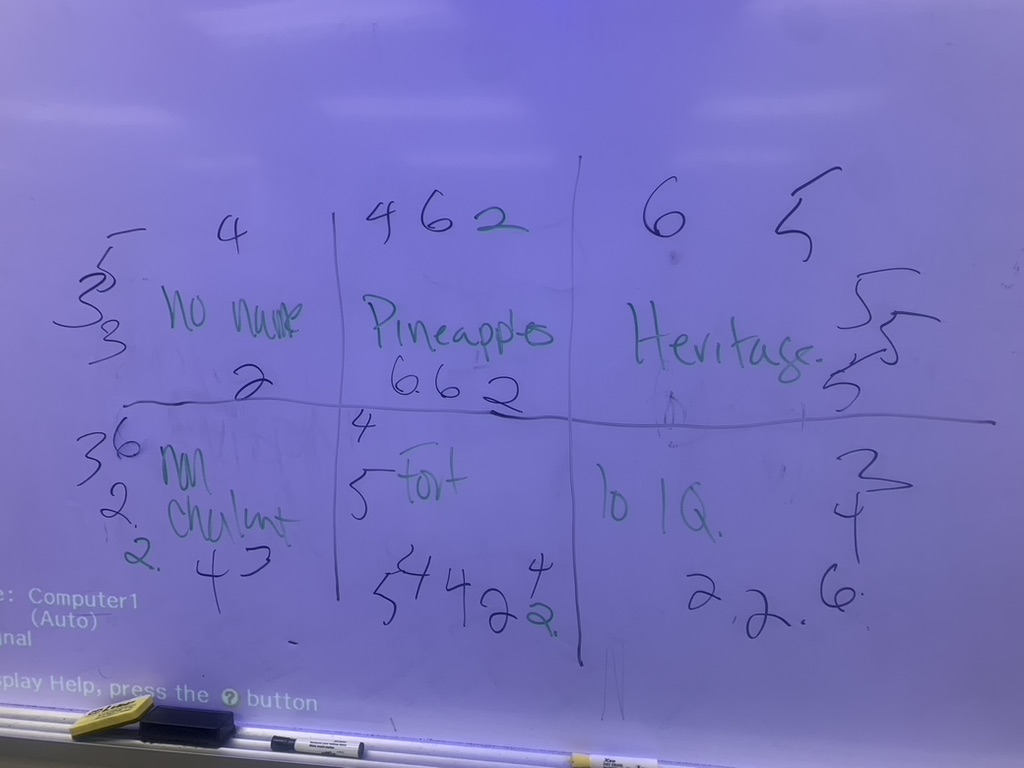 4
5
3
3
no name
2
4 6 2
Pineapples
6. 6 2
6 5
5
5
5
Heritage.
3 6
2.
2.
non
chalant
4 3
4
5
fort
5 4 4 2 4
2.
10 IQ.
3
4
2. 2. 6.
e: Computer1
(Auto)
nal
splay Help, press the ? button